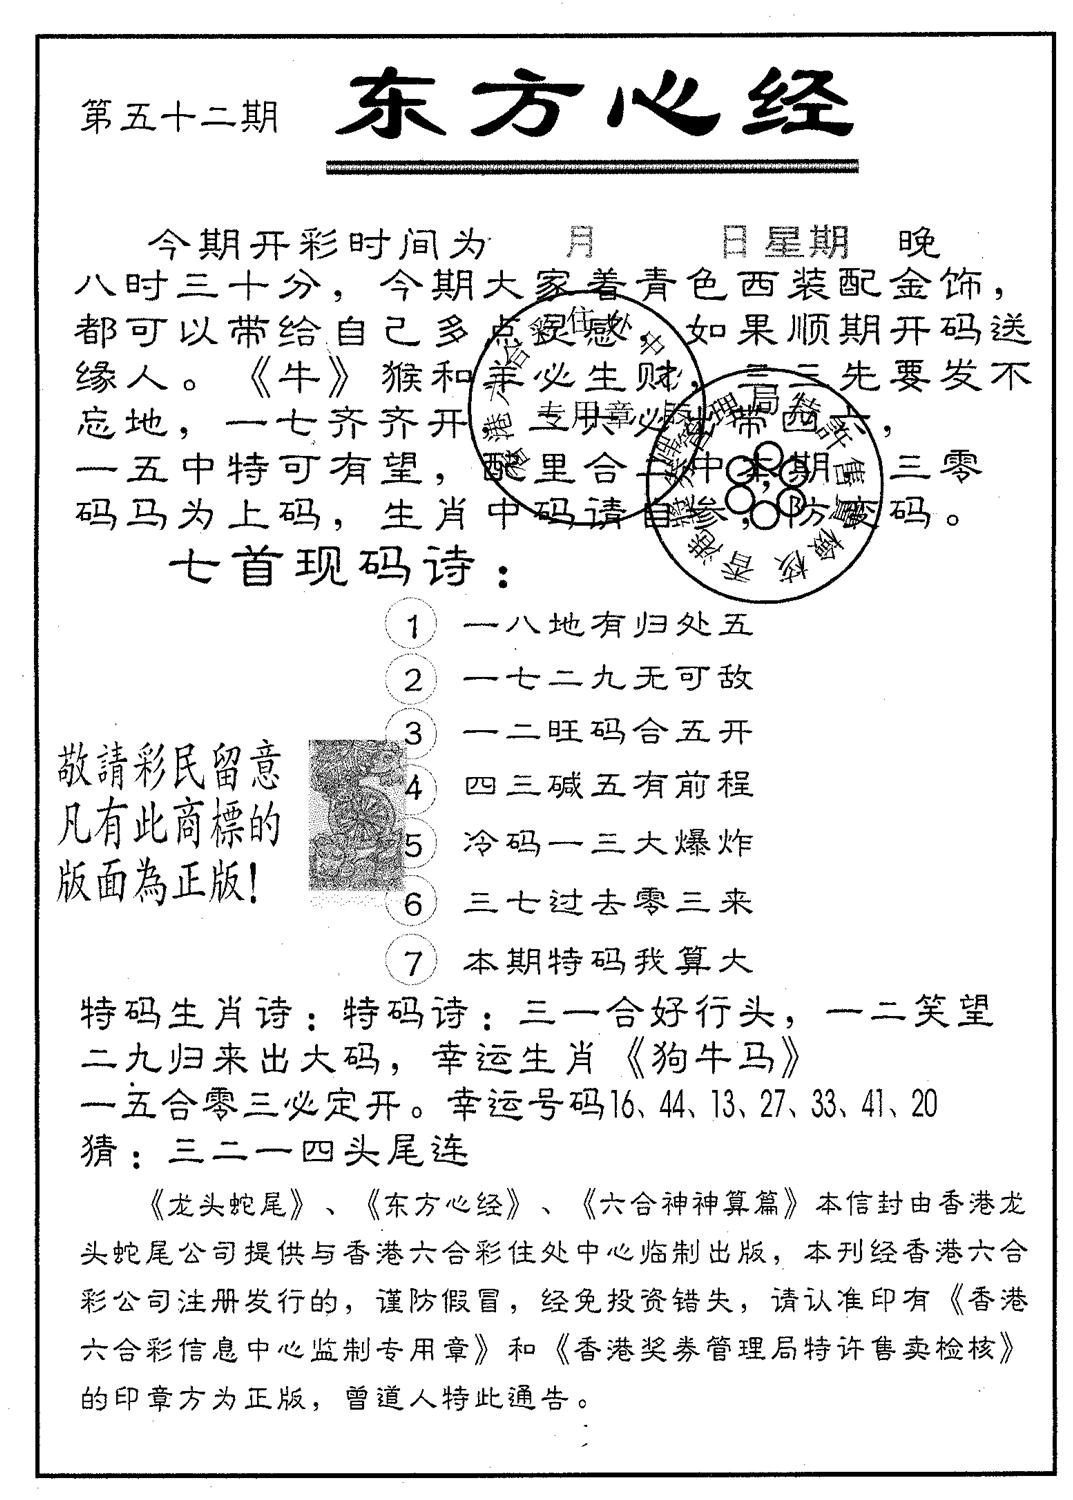 第五十二期
东方心经
今期开彩时间为 月 日星期 晚
八时三十分，今期大家着青色西装配金饰，
都可以带给自己多点灵感，如果顺期开码送
缘人。《牛》猴和羊必生财，三三先要发不
忘地，一七齐齐开，二共必出带四六，
一五中特可有望，配里合二中本期，三零
码马为上码，生肖中码请自参，防被码。
专用章
七首现码诗：
1 一八地有归处五
2 一七二九无可敌
3 一二旺码合五开
4 四三碱五有前程
5 冷码一三大爆炸
6 三七过去零三来
7 本期特码我算大
敬請彩民留意
凡有此商標的
版面為正版！
特码生肖诗：特码诗：三一合好行头，一二笑望
二九归来出大码，幸运生肖《狗牛马》
一五合零三必定开。幸运号码16、44、13、27、33、41、20
猜：三二一四头尾连
《龙头蛇尾》、《东方心经》、《六合神神算篇》本信封由香港龙
头蛇尾公司提供与香港六合彩住处中心临制出版，本刊经香港六合
彩公司注册发行的，谨防假冒，经免投资错失，请认准印有《香港
六合彩信息中心监制专用章》和《香港奖券管理局特许售卖检核》
的印章方为正版，曾道人特此通告。